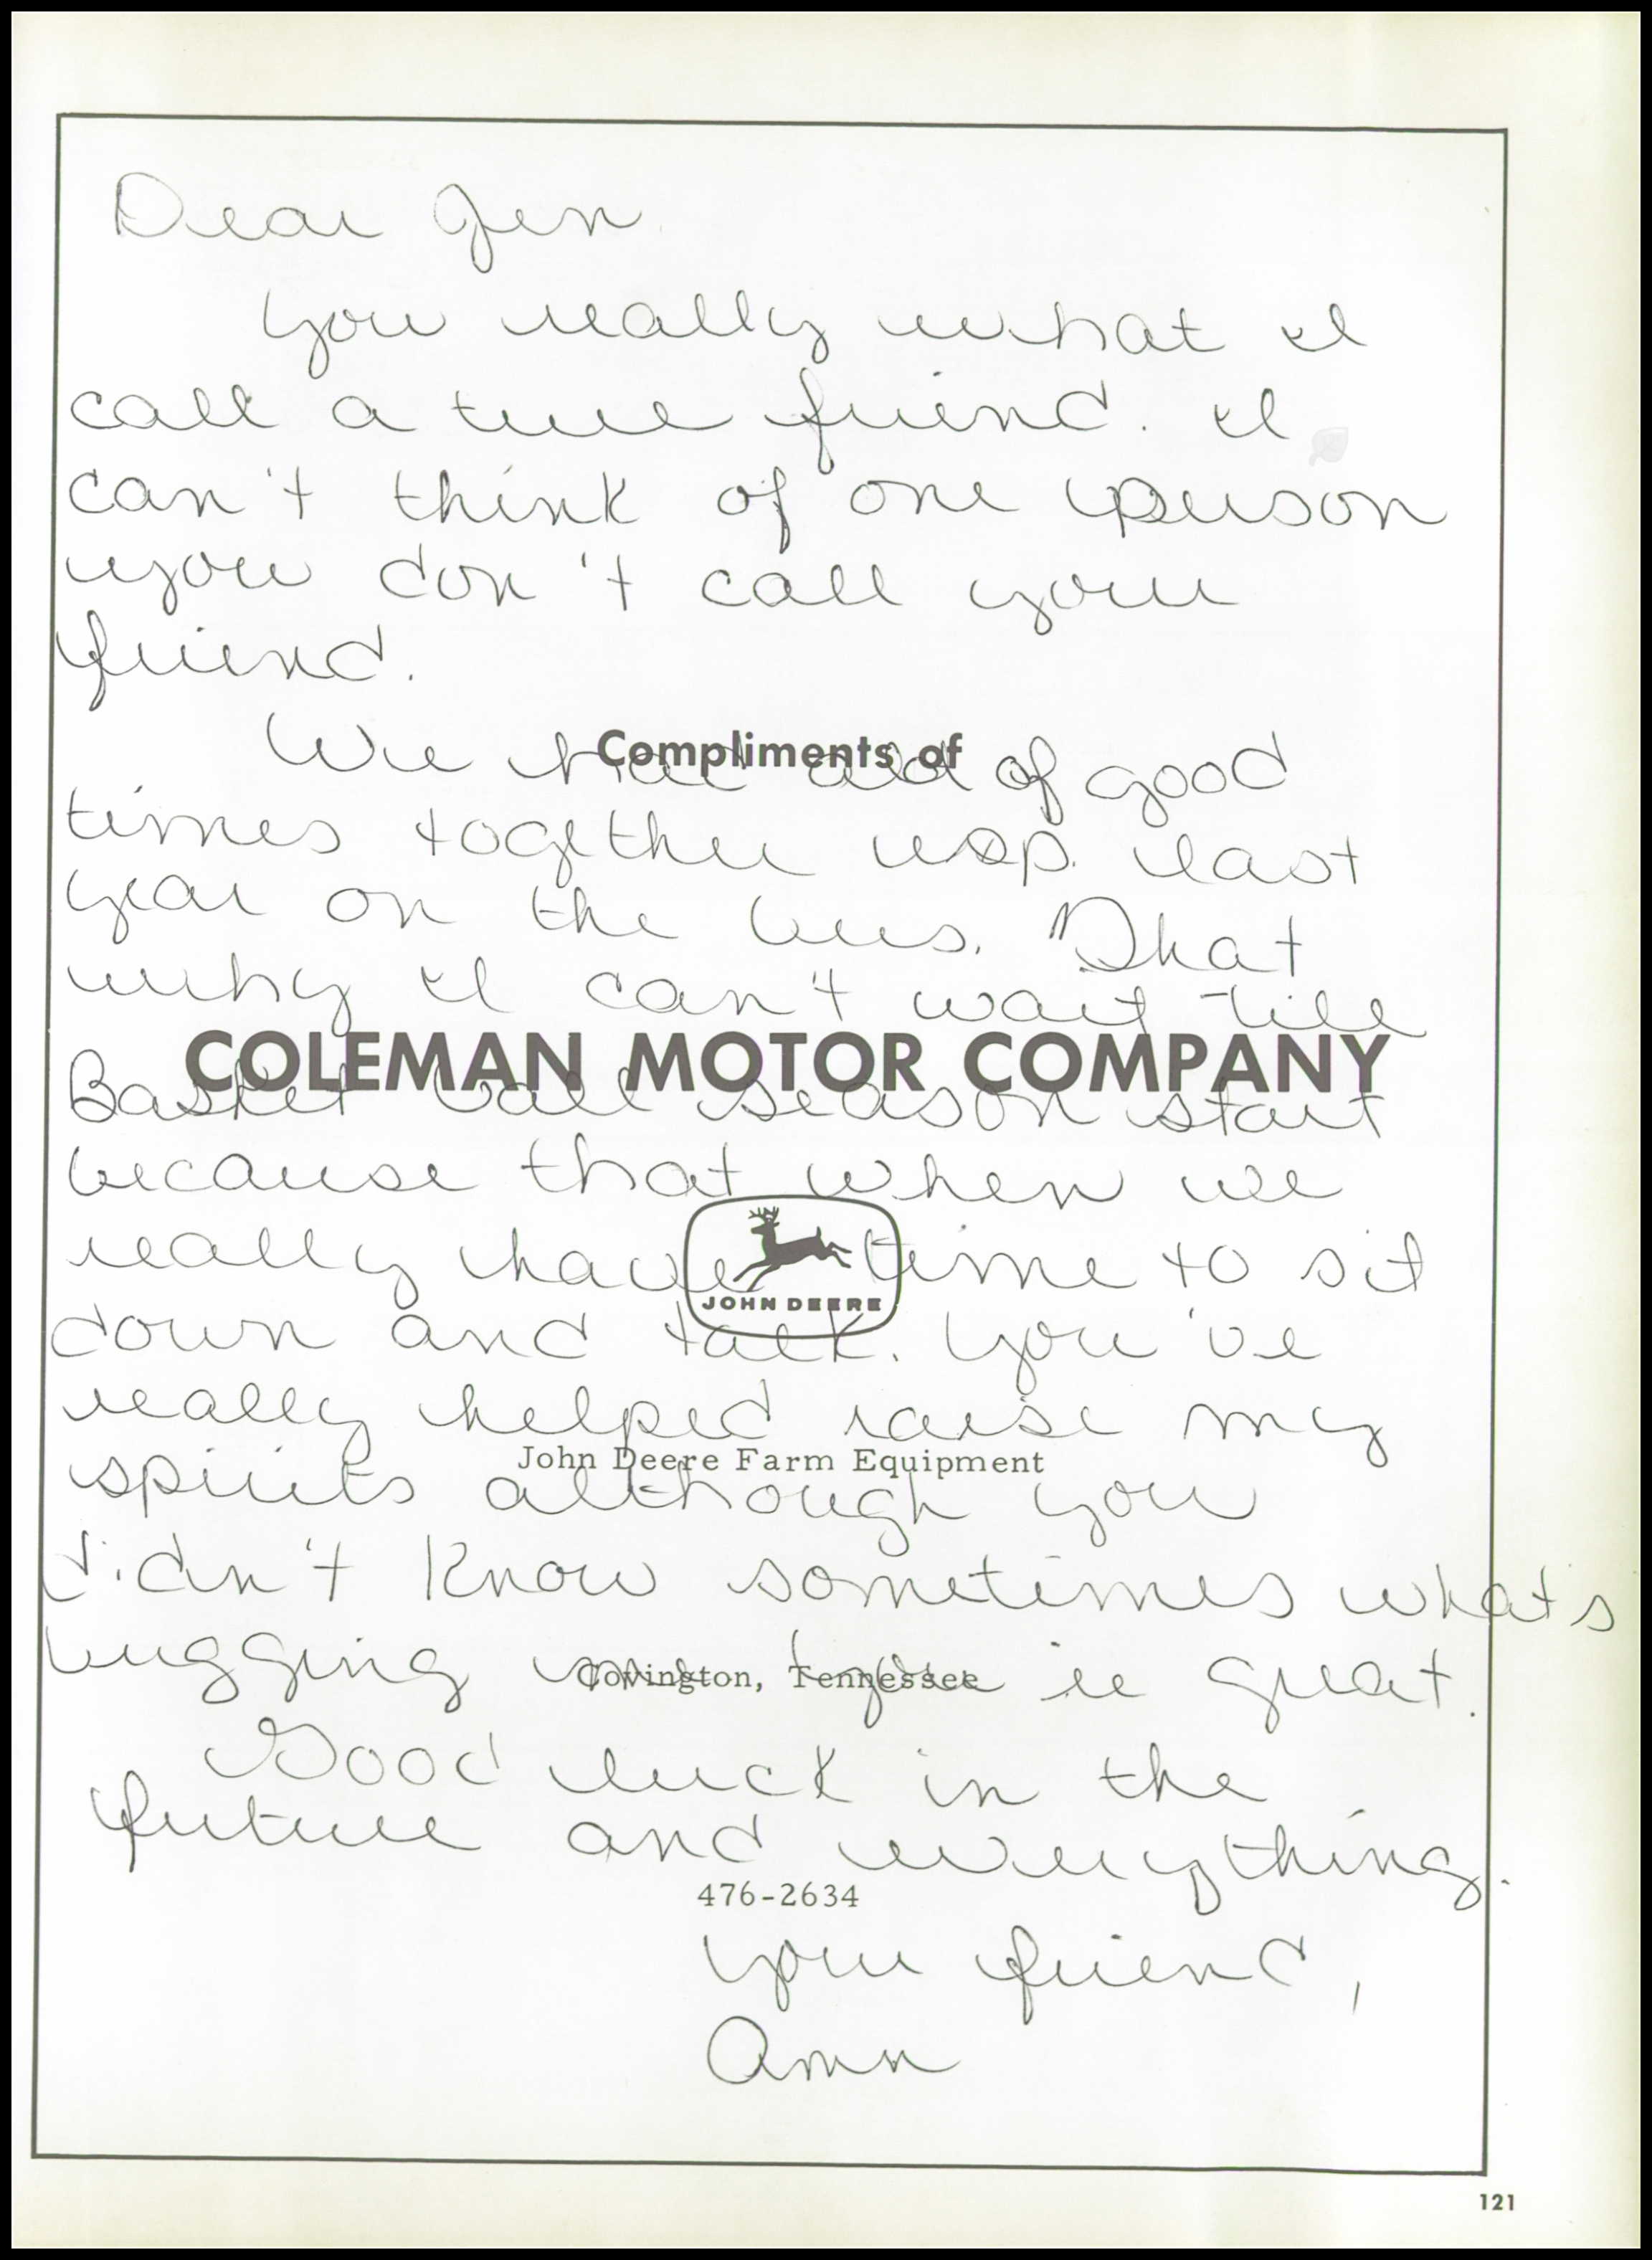 Dear Jen
You really what I
call a true friend. I
can't think of one person
you don't call your
friend.
Compliments of
We had of good
times together esp. last
year on the bus. That
why I can't wait till
COLEMAN MOTOR COMPANY
Basket ball season start
because that when we
really have time to sit
JOHN DEERE
down and talk. You've
really helped raise my
John Deere Farm Equipment
spirits although you
didn't know sometimes what's
bugging me. You great.
Covington, Tennessee
Good luck in the
future and everything.
476-2634
Your friend,
Ann
121